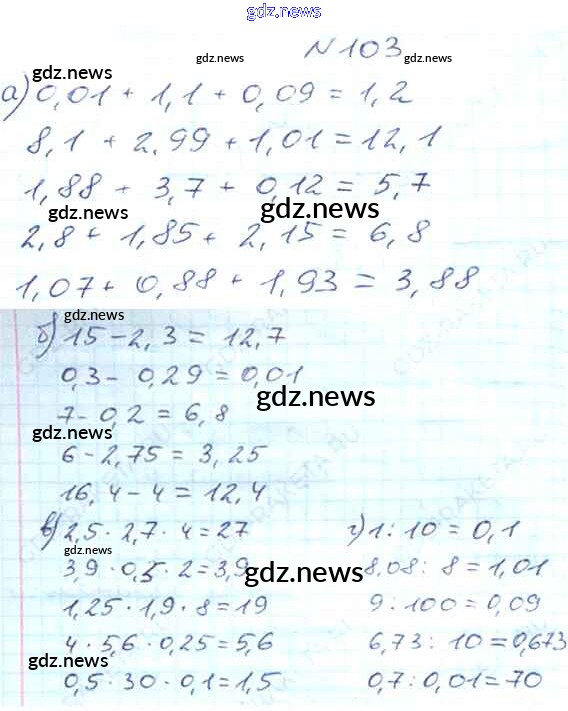 gdz.news
№103
gdz.news gdz.news
gdz.news
а) 0,01 + 1,1 + 0,09 = 1,2
8,1 + 2,99 + 1,01 = 12,1
1,88 + 3,7 + 0,12 = 5,7
gdz.news gdz.news
2,8 + 1,85 + 2,15 = 6,8
1,07 + 0,88 + 1,93 = 3,88
gdz.news
б) 15 - 2,3 = 12,7
0,3 - 0,29 = 0,01
gdz.news
7 - 0,2 = 6,8
gdz.news
6 - 2,75 = 3,25
16,4 - 4 = 12,4
в) 2,5 · 2,7 · 4 = 27
gdz.news
3,9 · 0,5 · 2 = 3,9
gdz.news
1,25 · 1,9 · 8 = 19
4 · 5,6 · 0,25 = 5,6
gdz.news
0,5 · 30 · 0,1 = 1,5
г) 1 : 10 = 0,1
8,08 : 8 = 1,01
9 : 100 = 0,09
6,73 : 10 = 0,673
0,7 : 0,01 = 70